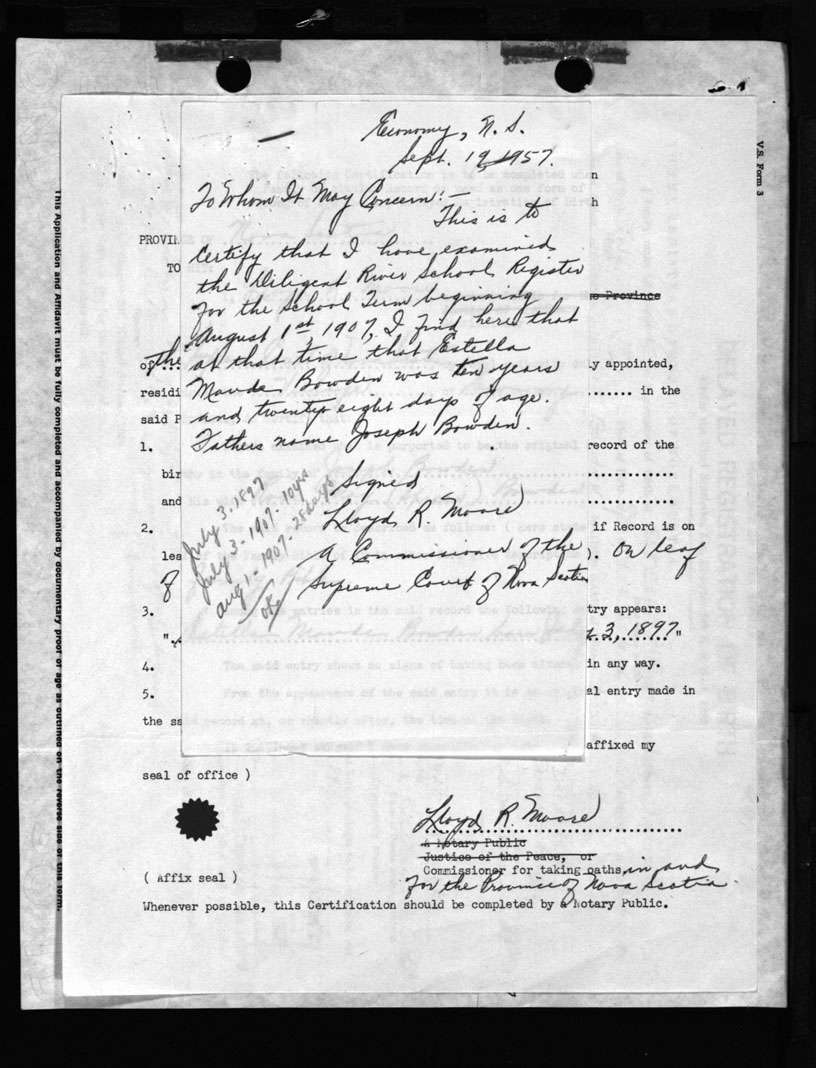 Economy, N. S.
Sept. 19 1957.
To Whom It May Concern:-
This is to
certify that I have examined
the Diligent River School Register
for the School Term beginning
August 1st, 1907, I find here that
at that time that Estella
Maude Bowden was ten years
and twenty eight days of age.
Fathers name Joseph Bowden.
Signed
Lloyd R. Moore
A Commissioner of the
Supreme Court of Nova Scotia
July 3. 1897
July 3- 1907. 10 yrs
Aug 1- 1907- 28 days
V.S. Form 3
This Application and Affidavit must be fully completed and accompanied by documentary proof of age as outlined on the reverse side of this form.
n
h
PROVIN
TO
Province
of the
ly appointed,
resid
in the
said P
1.
record of the
bir
and
2.
if Record is on
lea
). On leaf
of
3.
try appears:
". 3, 1897"
4.
in any way.
5.
al entry made in
the sa
affixed my
seal of office )
Lloyd R. Moore
A Notary Public
Justice of the Peace, or
Commissioner for taking oaths, in and
for the Province of Nova Scotia
( Affix seal )
Whenever possible, this Certification should be completed by a Notary Public.